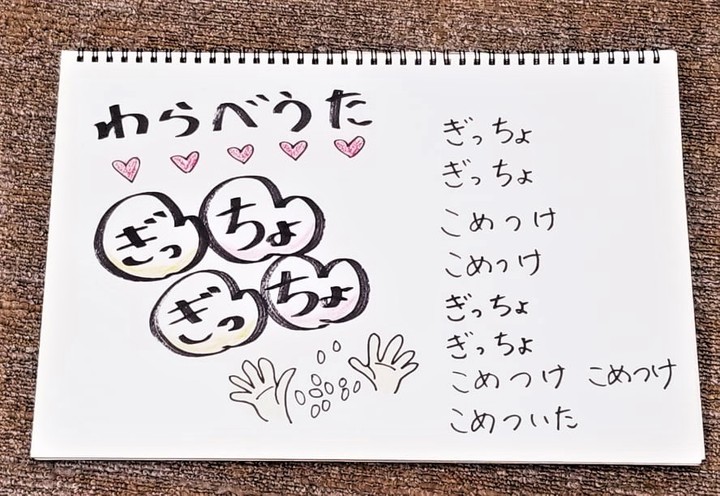 わらべうた
ぎっちょ
ぎっちょ
ぎっちょ
ぎっちょ
こめつけ
こめつけ
ぎっちょ
ぎっちょ
こめつけ こめつけ
こめついた